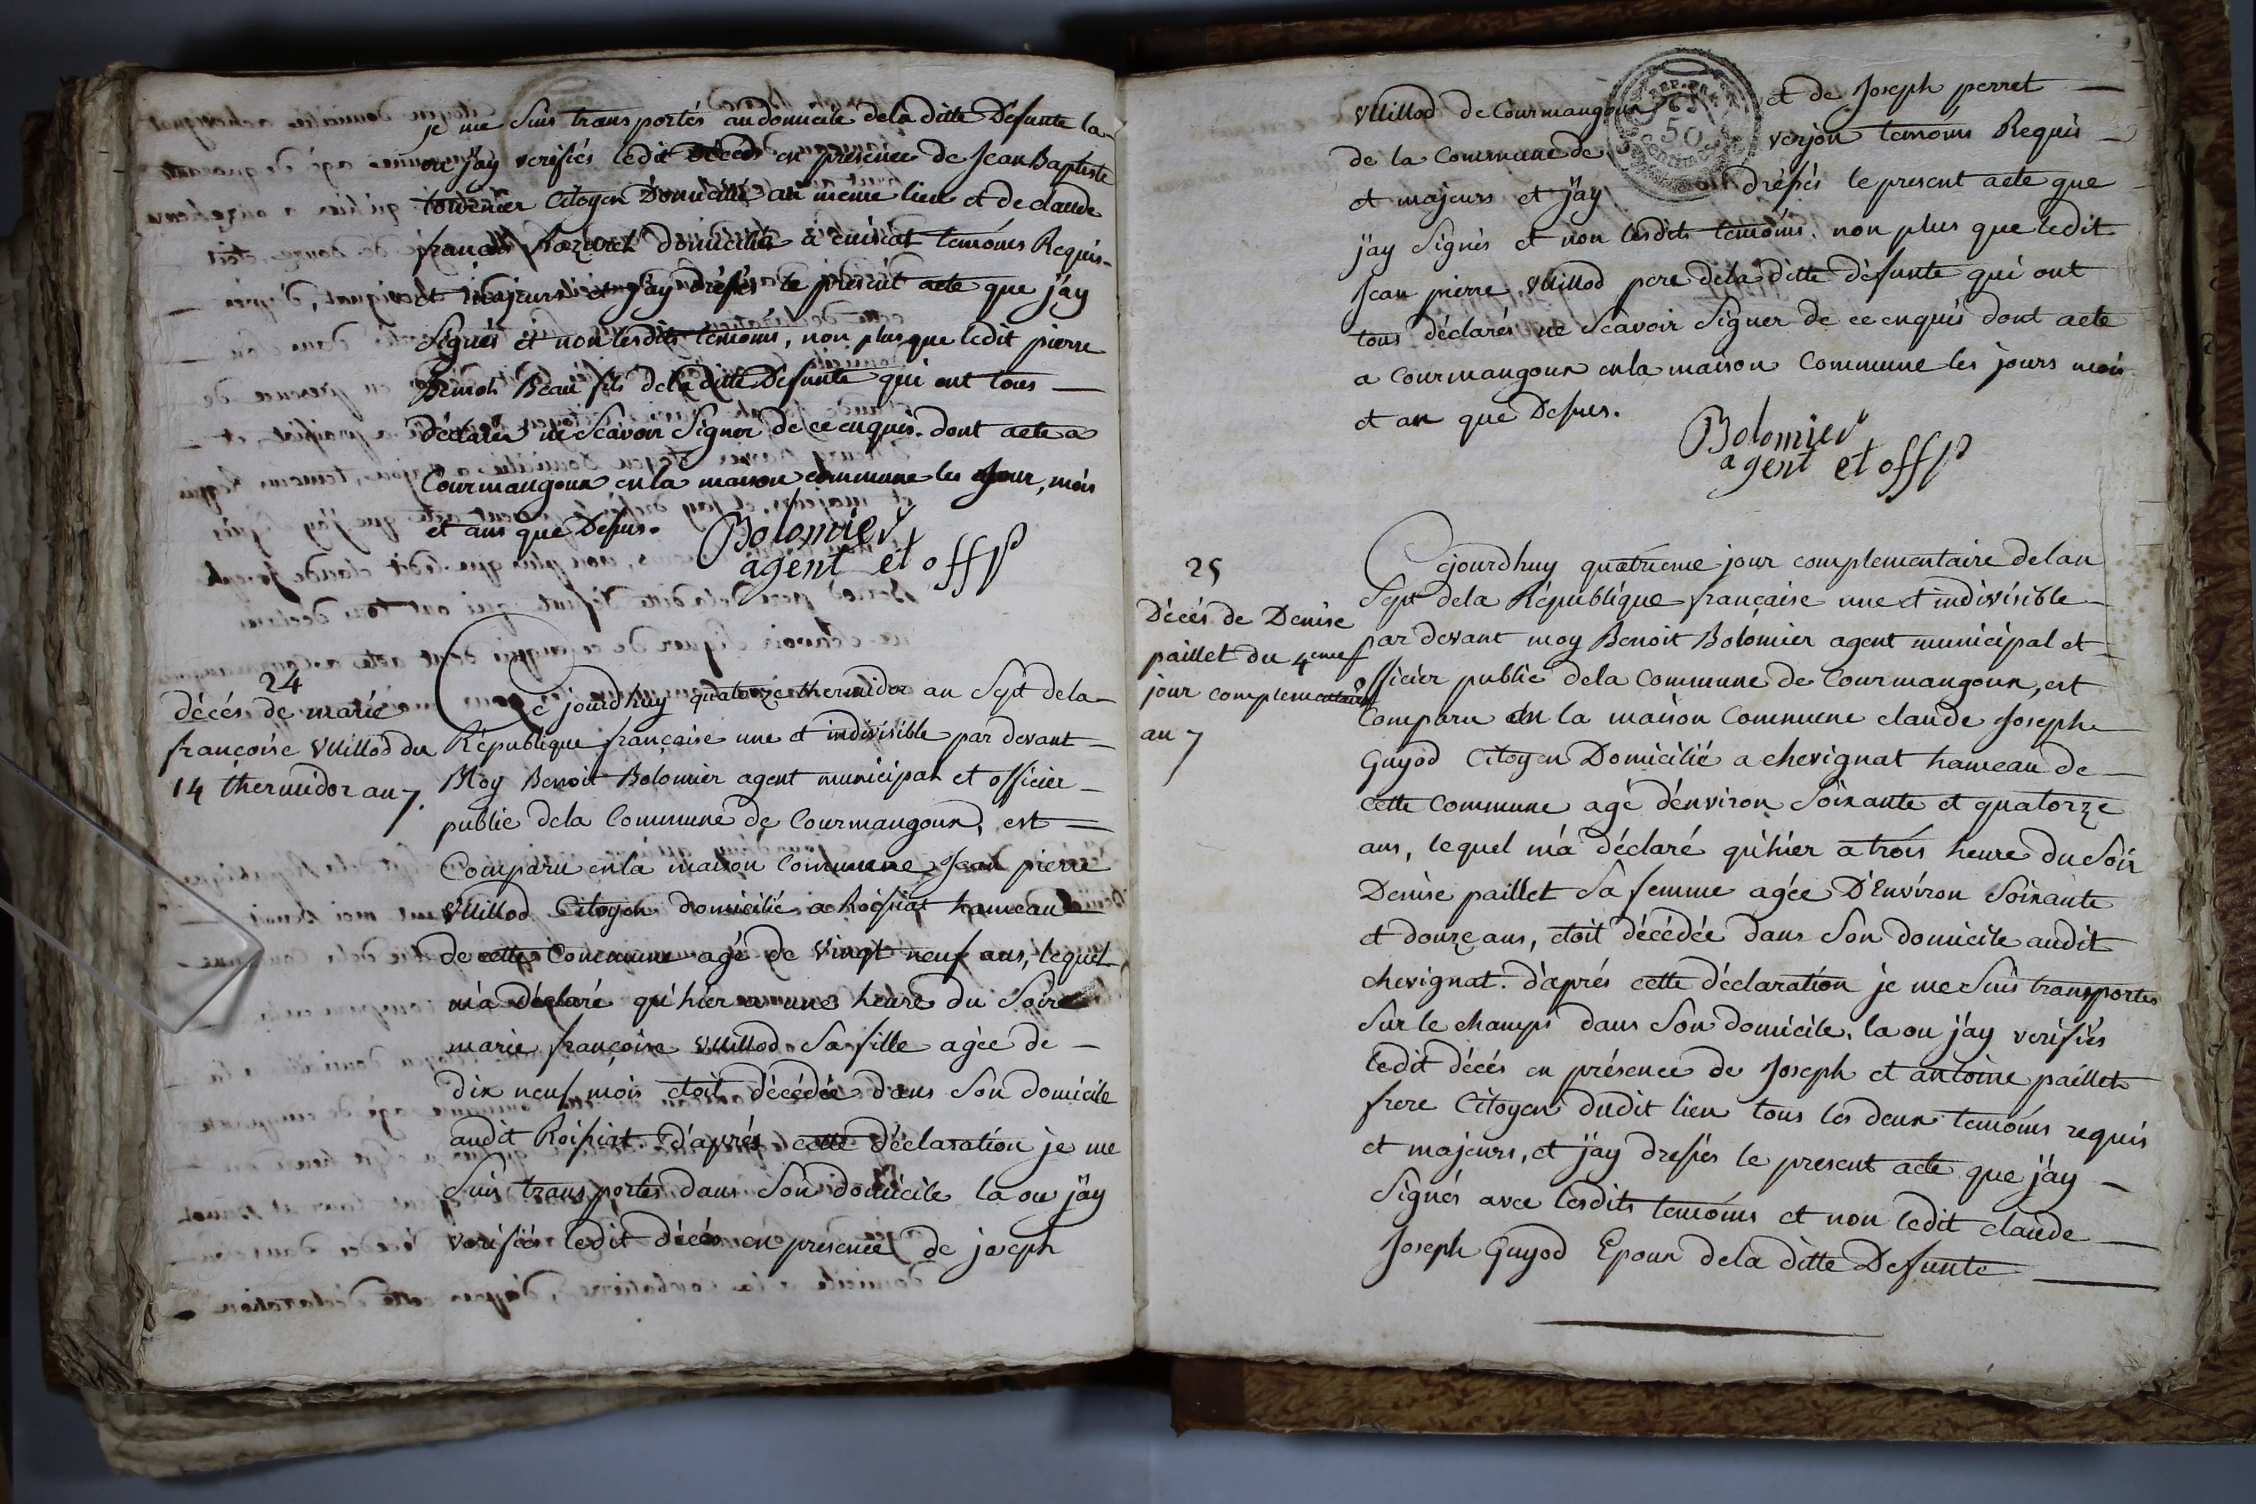 je me suis transportés audomicile dela ditte Defunte la
ou j'ay verifiés ledit décès en presence de Jean Baptiste
tournier Citoyen Domicilié au meme lieu et de claude
francois domicilié à cuisiat temoins Requis
et majeurs et j'ay dréssés le présent acte que j'ay
Signés et non lesdits temoins, non plus que ledit pierre
Benoit Beau fils dela ditte Défunte qui ont tous
déclarer ne Scavoir Signer de ce enquis. dont acte a
Courmangoux en la maison commune les Jour, mois
et ans que Dessus.
Bolomier
agent et off p
24
décés de marie
françoise Vuillod du
14 thermidor an 7.
Ce jourdhuy quatorze thermidor an Sept dela
République française une et indivisible par devant
Moy Benoit Bolomier agent municipal et officier
public dela Commune de Courmangoux, est
Comparu en la maison Commune Jean pierre
Vuillod Citoyen domicilié a Roissiat hameau
de cette Commune agé de vingt neuf ans, lequel
m'a déclaré qu'hier a une heure du Soire
marie françoise Vuillod Sa fille agée de
dix neuf mois etoit décédée dans Son domicile
audit Roissiat. d'après cette déclaration je me
Suis transportés dans Son domicile la ou j'ay
verifiés ledit décès en presence de joseph
Vuillod de Courmangoux et de Joseph perret
de la Commune de verjon temoins Requis
et majeurs et j'ay dréssés le present acte que
j'ay Signés et non lesdits temoins, non plus que ledit
Jean pierre Vuillod pere dela ditte défunte qui ont
tous déclarés ne Scavoir Signer de ce enquis dont acte
a Courmangoux en la maison Commune les jours mois
et an que Dessus.
REP. FRA.
50
Centimes
Bolomier
agent et off p
25
Décés de Denise
paillet du 4eme
jour complementaire
an 7
Cejourdhuy quatrieme jour complementaire delan
Sept dela République française une et indivisible
par devant moy Benoit Bolomier agent municipal et
officier public dela Commune de Courmangoux, est
Comparu en la maison Commune claude Joseph
Guyod Citoyen Domicilié a chevignat hameau de
cette commune agé d'environ Soixante et quatorze
ans, lequel m'a déclaré qu'hier a trois heure du Soir
Denise paillet Sa femme agée D'Environ Soixante
et douze ans, etoit décédée dans Son domicile audit
chevignat. d'après cette déclaration je me Suis transportés
Sur le champs dans Son domicile, la ou j'ay verifiés
ledit décès en présence de Joseph et antoine paillet
frere Citoyen dudit lieu tous les deux temoins requis
et majeurs, et j'ay dressés le present acte que j'ay
Signés avec lesdits temoins et non ledit claude
Joseph Guyod Epoux dela ditte Defunte